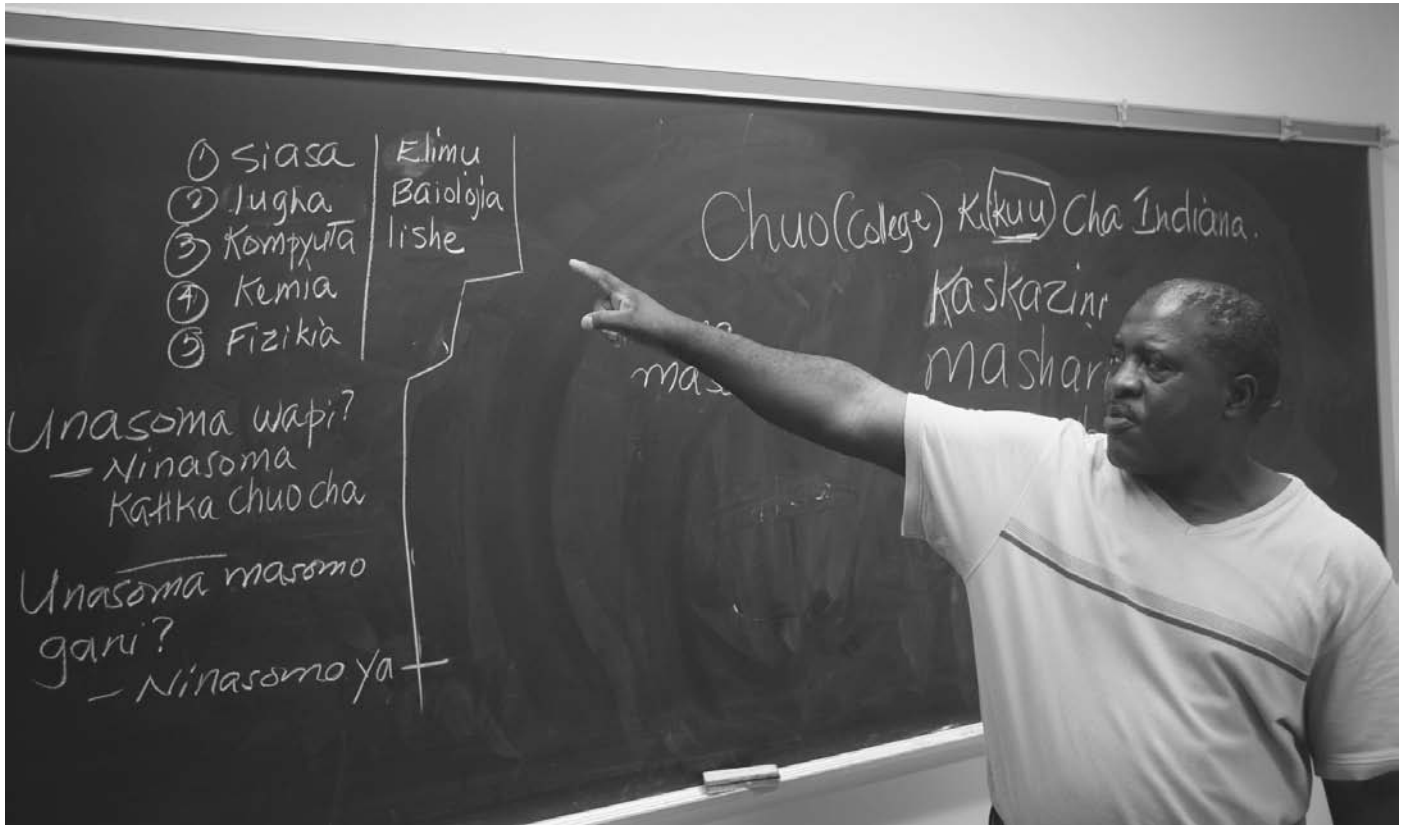 ① Siasa
② lugha
③ Kompyuta
④ Kemia
⑤ Fizikia
Elimu
Baiolojia
lishe
Unasoma wapi?
– Ninasoma
Katika chuo cha
Unasoma masomo
gani?
– Ninasomo ya
Chuo (College) Ki(kuu) Cha Indiana.
Kaskazini